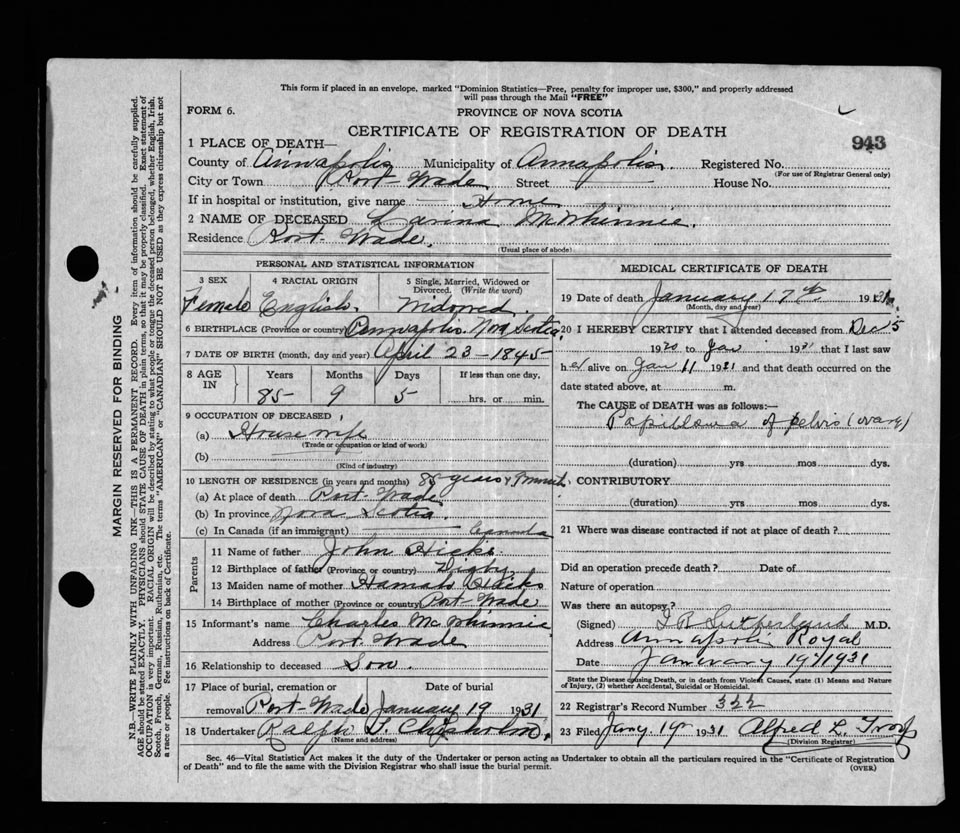 This form if placed in an envelope, marked "Dominion Statistics—Free, penalty for improper use, $300," and properly addressed
will pass through the Mail "FREE"
FORM 6. PROVINCE OF NOVA SCOTIA
CERTIFICATE OF REGISTRATION OF DEATH
943
1 PLACE OF DEATH—
County of Annapolis Municipality of Annapolis Registered No.
(For use of Registrar General only)
City or Town Port Wade Street House No.
If in hospital or institution, give name Home
2 NAME OF DECEASED Larina McWhinnie.
Residence Port Wade.
(Usual place of abode)
PERSONAL AND STATISTICAL INFORMATION
3 SEX 4 RACIAL ORIGIN 5 Single, Married, Widowed or
Divorced. (Write the word)
Female English. Widowed
6 BIRTHPLACE (Province or country) Annapolis. Nova Scotia
7 DATE OF BIRTH (month, day and year) April 23-1845-
8 AGE IN Years Months Days If less than one day,
85 9 5 hrs. or min.
9 OCCUPATION OF DECEASED
(a) Housewife
(Trade or occupation or kind of work)
(b)
(Kind of industry)
10 LENGTH OF RESIDENCE (in years and months) 85 years & 9 month
(a) At place of death Port Wade
(b) In province Nova Scotia
(c) In Canada (if an immigrant) Canada
Parents
11 Name of father John Hicks.
12 Birthplace of father (Province or country) Digby
13 Maiden name of mother Hicks
14 Birthplace of mother (Province or country) Port Wade
15 Informant's name Charles McWhinnie
Address Port Wade
16 Relationship to deceased Son.
17 Place of burial, cremation or Date of burial
removal Port Wade January 19 1931
18 Undertaker Ralph S. Chisholm.
(Name and address)
MEDICAL CERTIFICATE OF DEATH
19 Date of death January 17th 1931
(Month, day and year)
20 I HEREBY CERTIFY that I attended deceased from Dec 5
1930 to Jan 1931 that I last saw
h er alive on Jan 11 1931 and that death occurred on the
date stated above, at m.
The CAUSE OF DEATH was as follows:—
Papilloma of pelvis (ovary)
(duration) yrs mos dys.
CONTRIBUTORY
(duration) yrs mos dys.
21 Where was disease contracted if not at place of death?
Did an operation precede death? Date of
Nature of operation
Was there an autopsy?
(Signed) Sutherland M.D.
Address Annapolis Royal
Date January 19/1931
State the Disease causing Death, or in death from Violent Causes, state (1) Means and Nature
of Injury, (2) whether Accidental, Suicidal or Homicidal.
22 Registrar's Record Number 322
23 Filed Jany. 19 1931 Alfred L. Troop
(Division Registrar)
Sec. 46—Vital Statistics Act makes it the duty of the Undertaker or person acting as Undertaker to obtain all the particulars required in the "Certificate of Registration
of Death" and to file the same with the Division Registrar who shall issue the burial permit.
(OVER)
MARGIN RESERVED FOR BINDING
N.B.—WRITE PLAINLY WITH UNFADING INK—THIS IS A PERMANENT RECORD. Every item of information should be carefully supplied.
AGE should be stated EXACTLY. PHYSICIANS should STATE CAUSE OF DEATH in plain terms, so that it may be properly classified. Exact statement of
OCCUPATION is very important. RACIAL ORIGIN will be described by stating to what people or tongue the deceased person belonged, whether English, Irish,
Scotch, French, German, Russian, Ruthenian, etc. The terms "AMERICAN" or "CANADIAN" SHOULD NOT BE USED as they express citizenship but not
a race or people. See instructions on back of Certificate.